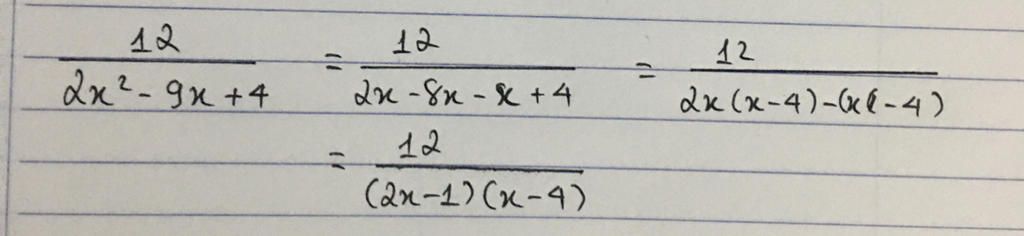 12/(2x² - 9x + 4) = 12/(2x - 8x - x + 4) = 12/(2x(x - 4) - (x(- 4))
= 12/((2x - 1)(x - 4))